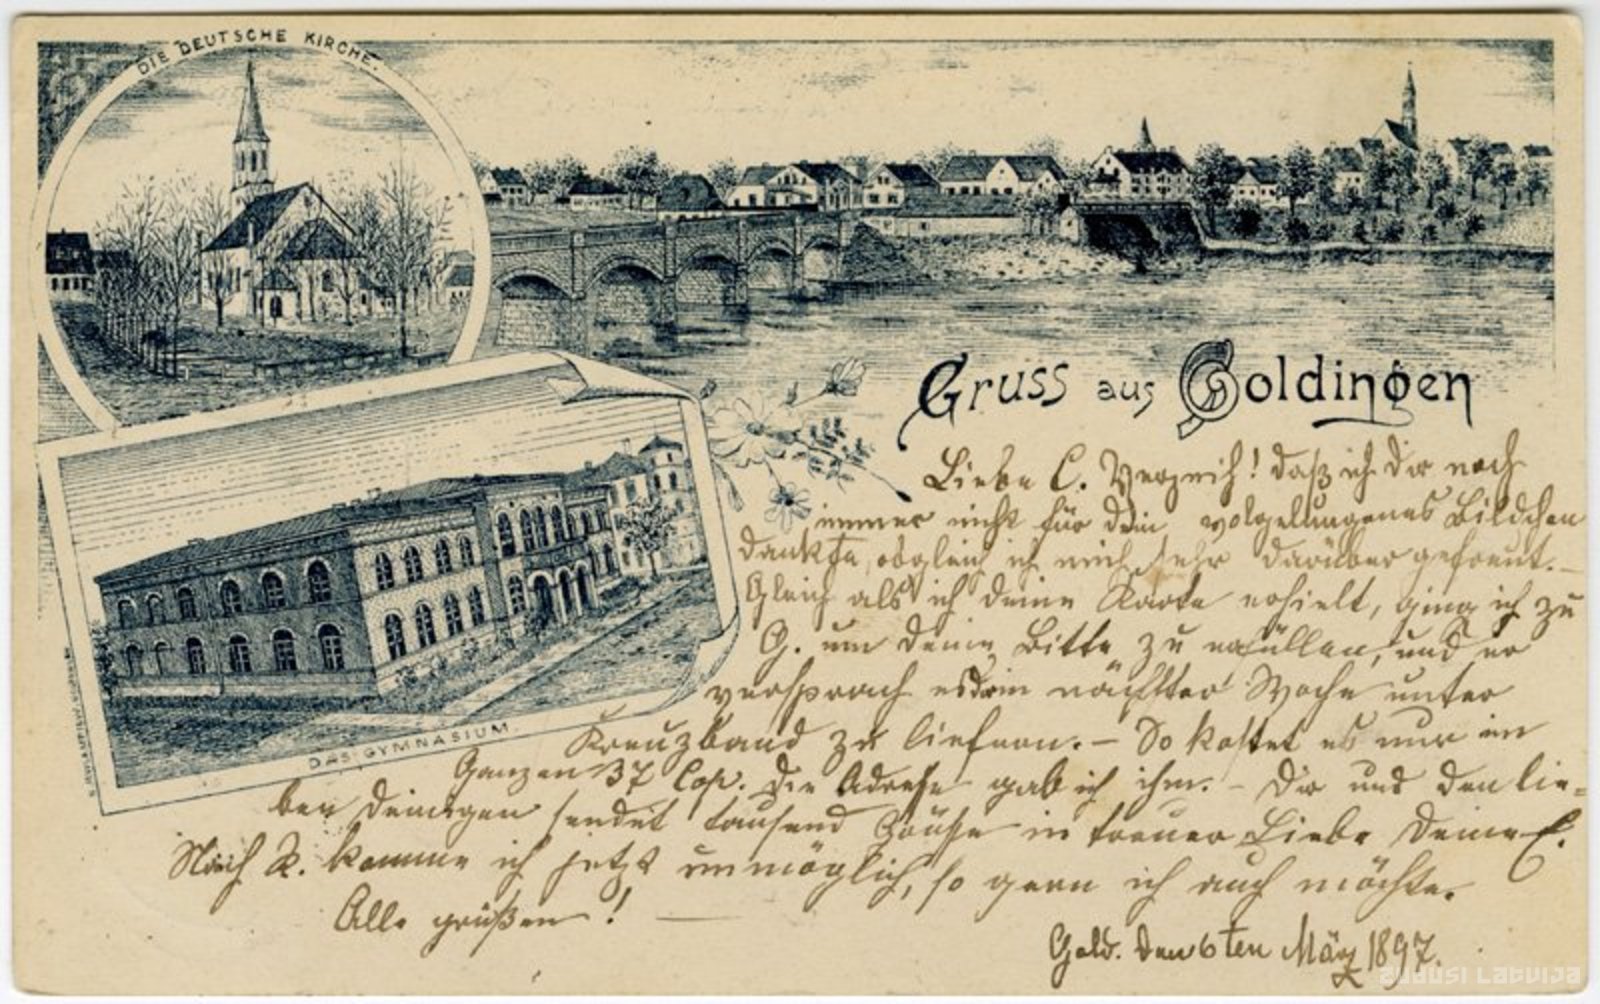 DIE DEUTSCHE KIRCHE.
Gruss aus Goldingen
DAS GYMNASIUM.
Liebe C. Verzeih! daß ich Dir noch
immer nicht für dein wolgelungenes Bildchen
dankte, obgleich ich mich sehr darüber gefreut.–
Gleich als ich deine Karte erhielt, ging ich zu
G. um deine Bitte zu erfüllen, und er
versprach es in nächster Woche unter
Kreuzband zu liefern.– So kostet es nur im
Ganzen 37 Cop. Die Adresse gab ich ihm.– Dir und den lie-
ben Deinigen sendet tausend Grüsse in treuer Liebe Deine E.
Nach R. komme ich jetzt unmöglich, so gern ich auch möchte.
Alle grüßen! —
Gold. den 6ten März 1897.
ZUDUSI LATVIJA